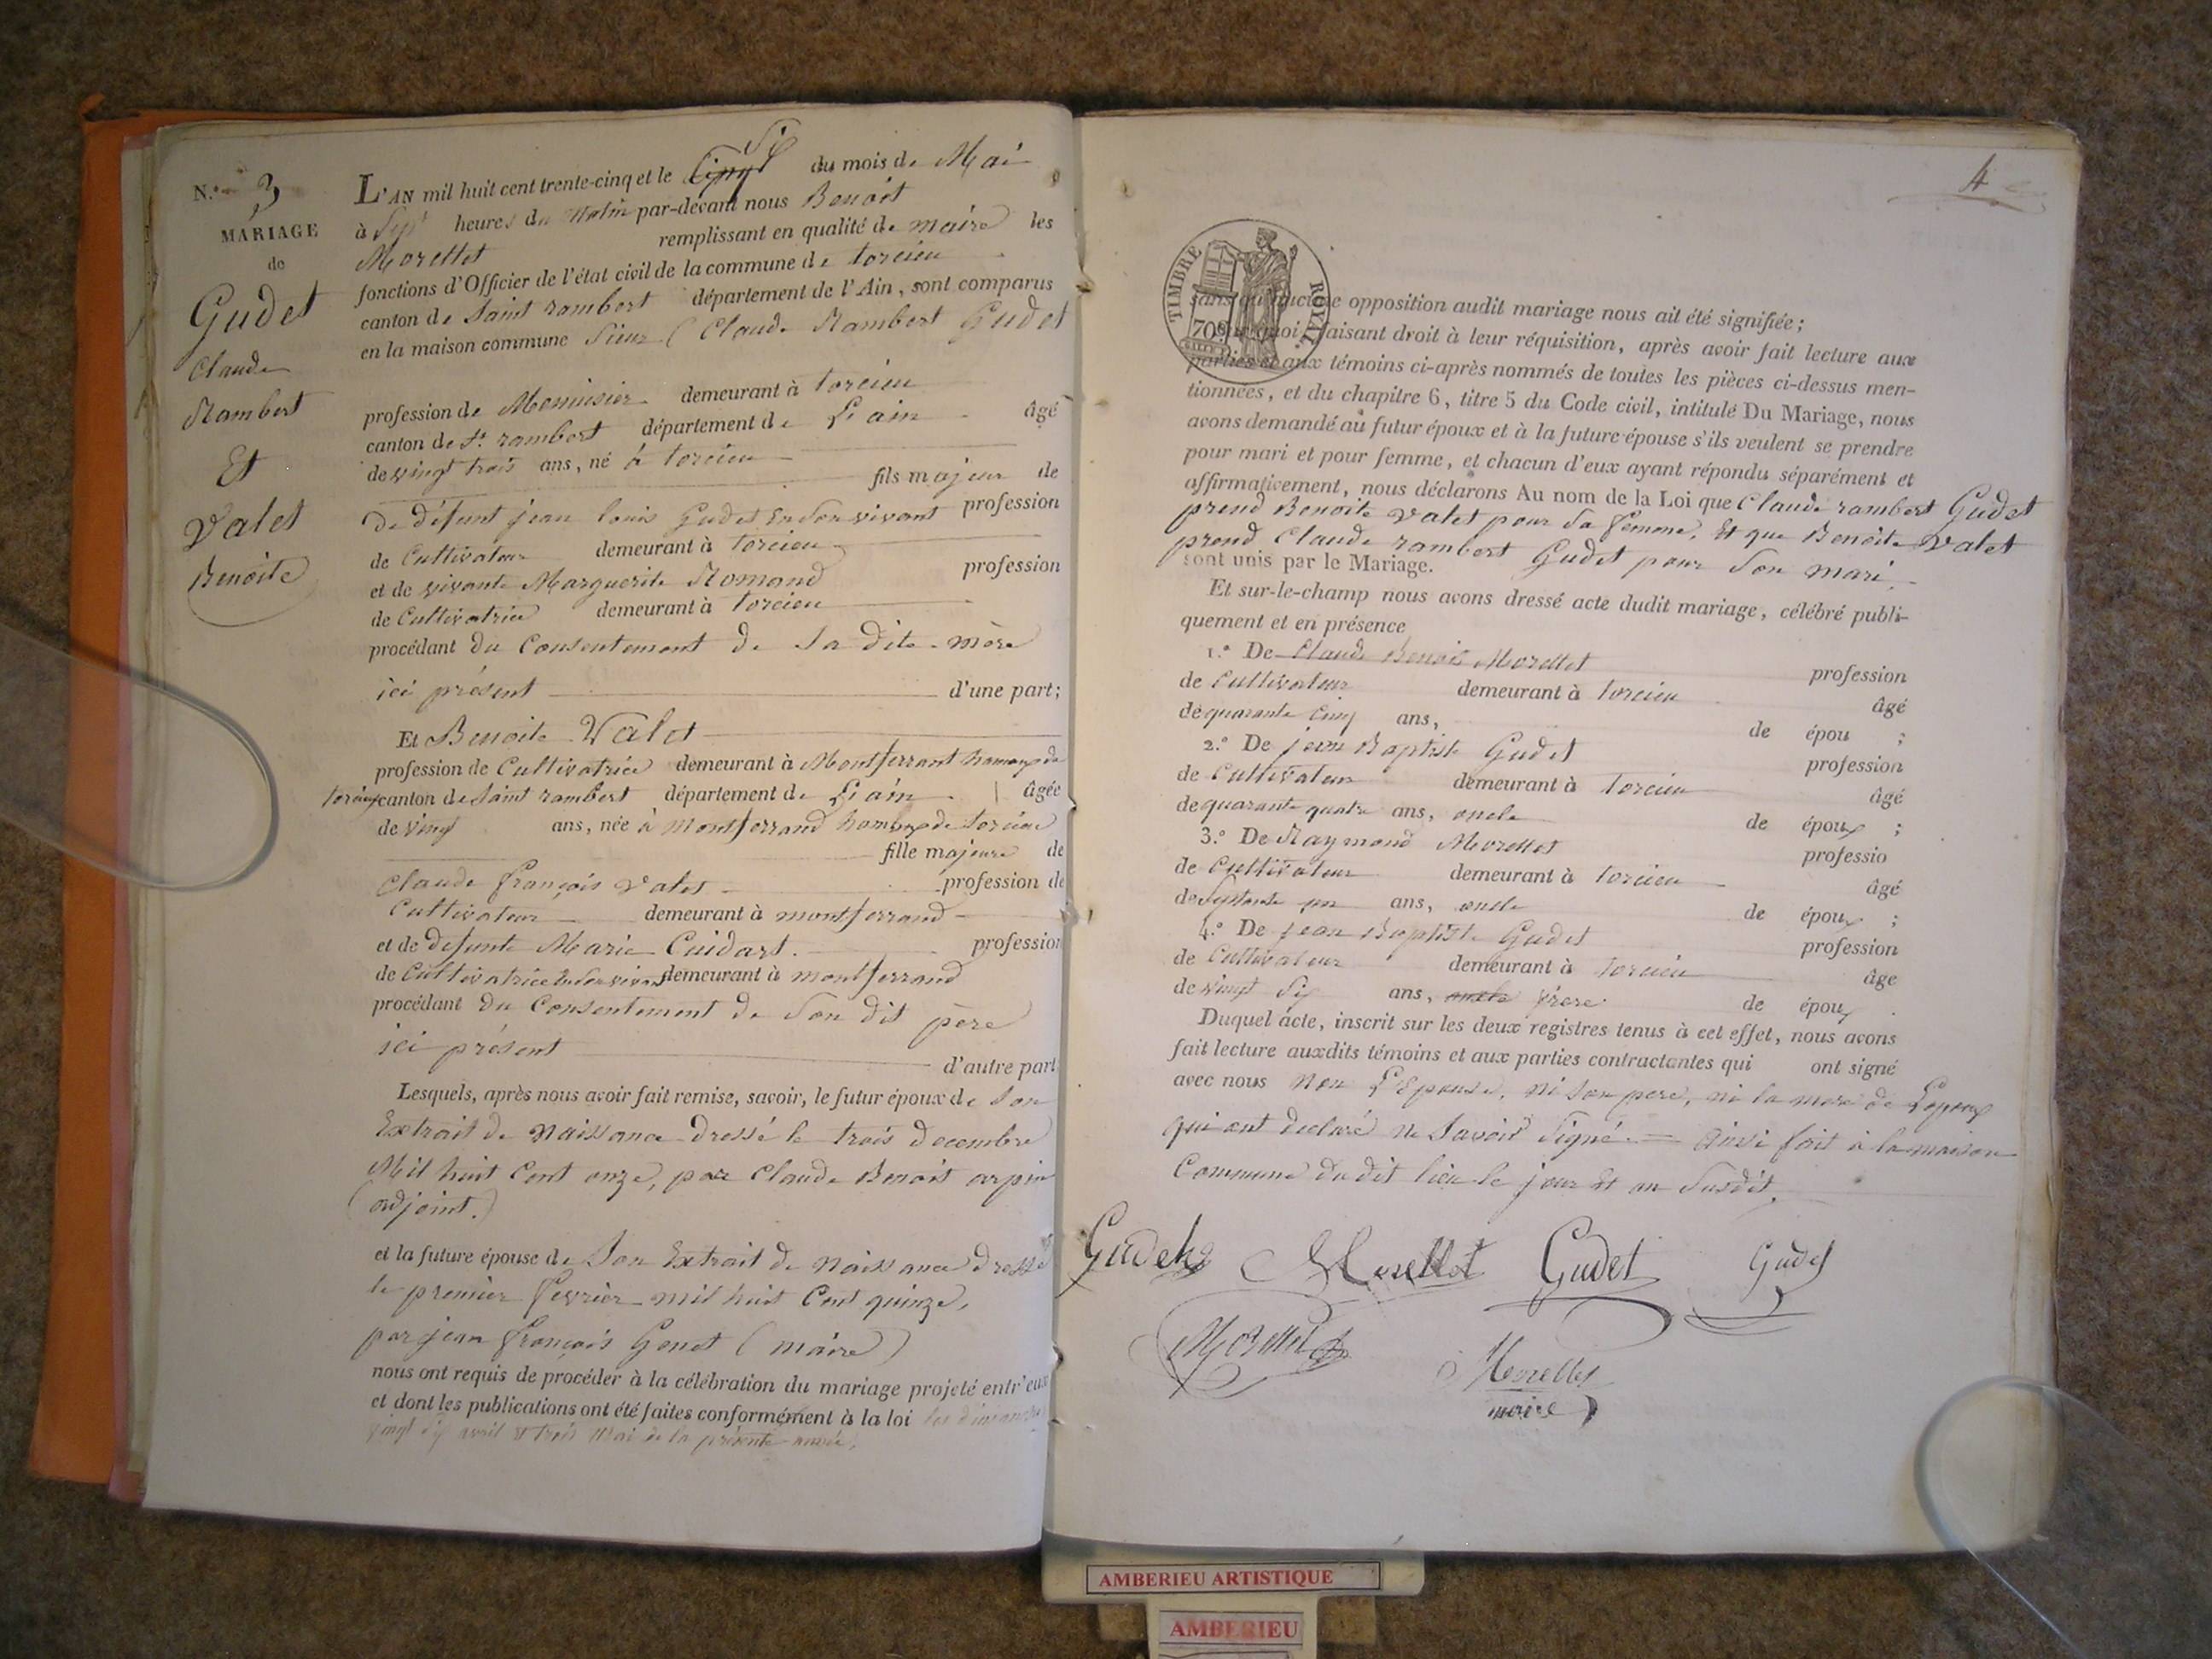 N.° 3
MARIAGE
de
Gudet
Claude
Rambert
Et
Valet
Benoite
L'AN mil huit cent trente-cinq et le Six du mois de Mai
à Sept heures du Matin par-devant nous Benoit
Morellet remplissant en qualité de maire les
fonctions d'Officier de l'état civil de la commune de torcieu
canton de Saint rambert département de l'Ain, sont comparus
en la maison commune Sieur Claude Rambert Gudet
profession de Menuisier demeurant à torcieu
canton de St. rambert département de L'ain âgé
de vingt trois ans, né à torcieu
fils majeur de
De défunt jean louis Gudet En Son vivant profession
de Cultivateur demeurant à torcieu
et de vivante Marguerite Romand profession
de Cultivatrice demeurant à torcieu
procédant du Consentement de Sa dite mère
ici présent d'une part;
Et Benoite Valet
profession de Cultivatrice demeurant à Montferrant hameau de
torcieu canton de Saint rambert département de L'ain âgée
de vingt ans, née à montferrand hameau de torcieu
fille majeure de
Claude françois valet profession de
Cultivateur demeurant à montferrand
et de defunte Marie Cuidart. profession
de Cultivatrice En Son vivant demeurant à montferrand
procédant du Consentement de Son dit père
ici présent d'autre part
Lesquels, après nous avoir fait remise, savoir, le futur époux de Son
Extrait de Naissance dressé le trois decembre
Mil huit Cent onze, par Claude Benoit arpin
(adjoint.)
et la future épouse de Son Extrait de Naissance dressé
le premier fevrier mil huit Cent quinze,
par jean françois Genet (maire)
nous ont requis de procéder à la célébration du mariage projeté entr'eux
et dont les publications ont été faites conformément à la loi les dimanches
vingt six avril et trois Mai de la présente année,
4
TIMBRE ROYAL
70c
sans qu'aucune opposition audit mariage nous ait été signifiée;
Pourquoi, faisant droit à leur réquisition, après avoir fait lecture aux
parties et aux témoins ci-après nommés de toutes les pièces ci-dessus men-
tionnées, et du chapitre 6, titre 5 du Code civil, intitulé Du Mariage, nous
avons demandé au futur époux et à la future épouse s'ils veulent se prendre
pour mari et pour femme, et chacun d'eux ayant répondu séparément et
affirmativement, nous déclarons Au nom de la Loi que Claude rambert Gudet
prend Benoite valet pour Sa femme, Et que Benoite valet
prend Claude rambert Gudet pour Son mari
sont unis par le Mariage.
Et sur-le-champ nous avons dressé acte dudit mariage, célébré publi-
quement et en présence
1.° De Claude Benoit Morellet profession
de Cultivateur demeurant à torcieu âgé
de quarante cinq ans, de épou ;
2.° De jean Baptiste Gudet profession
de Cultivateur demeurant à torcieu âgé
de quarante quatre ans, oncle de époux ;
3.° De Raymond Morellet professio
de Cultivateur demeurant à torcieu âgé
de Septante un ans, oncle de époux ;
4.° De jean Baptiste Gudet profession
de Cultivateur demeurant à torcieu âge
de vingt Six ans, oncle frere de époux .
Duquel acte, inscrit sur les deux registres tenus à cet effet, nous avons
fait lecture auxdits témoins et aux parties contractantes qui ont signé
avec nous Non L'Epouse, ni Son pere, ni la mere de L'epoux
qui ont declaré ne Savoir Signé. Ainsi fait à la maison
Commune du dit lieu le jour et an Susdit.
Gudet Morellet Gudet Gudet
Morellet Morellet
maire
AMBERIEU ARTISTIQUE
AMBERIEU